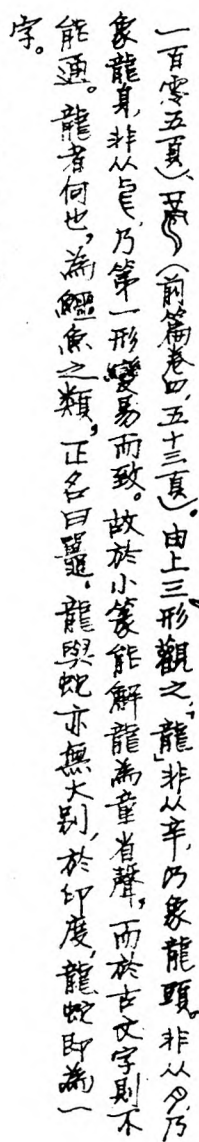 一百零五頁)、(前篇卷四,五十三頁)。由上三形觀之,「龍」非从辛,乃象龍頭。非从月,乃
象龍身,非从㫐,乃第一形變易而致。故於小篆能解龍為童省聲,而於古文字則不
能通。龍者何也,為鱷魚之類,正名曰鼉。龍與蛇亦無大別,於印度,龍蛇即為一
字。